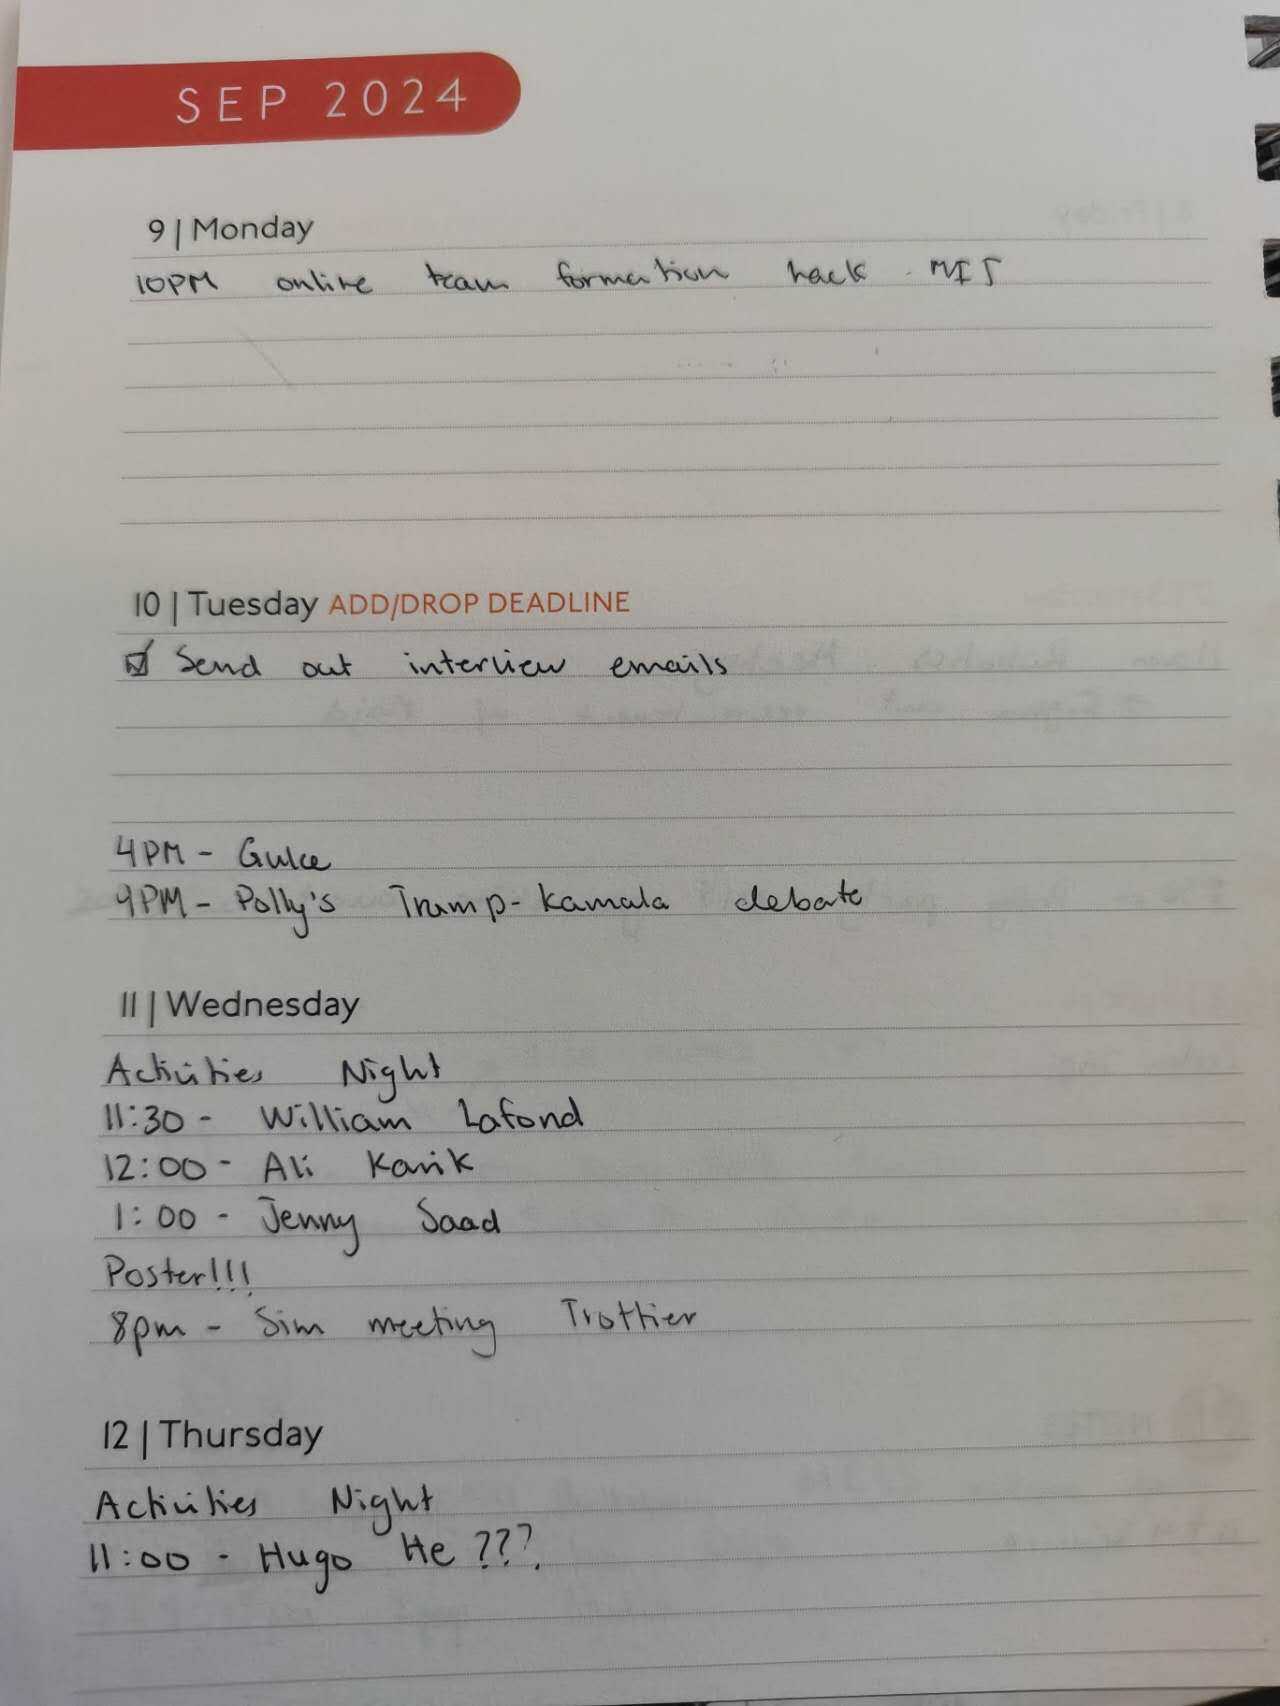 SEP 2024
9 | Monday
10PM online team formation hack MIT
10 | Tuesday ADD/DROP DEADLINE
☑ Send out interview emails
4PM - Gulce
9PM - Polly's Trump-Kamala debate
11 | Wednesday
Activities Night
11:30 - William Lafond
12:00 - Ali Karik
1:00 - Jenny Saad
Poster!!!
8pm - Sim meeting Trottier
12 | Thursday
Activities Night
11:00 - Hugo He ???